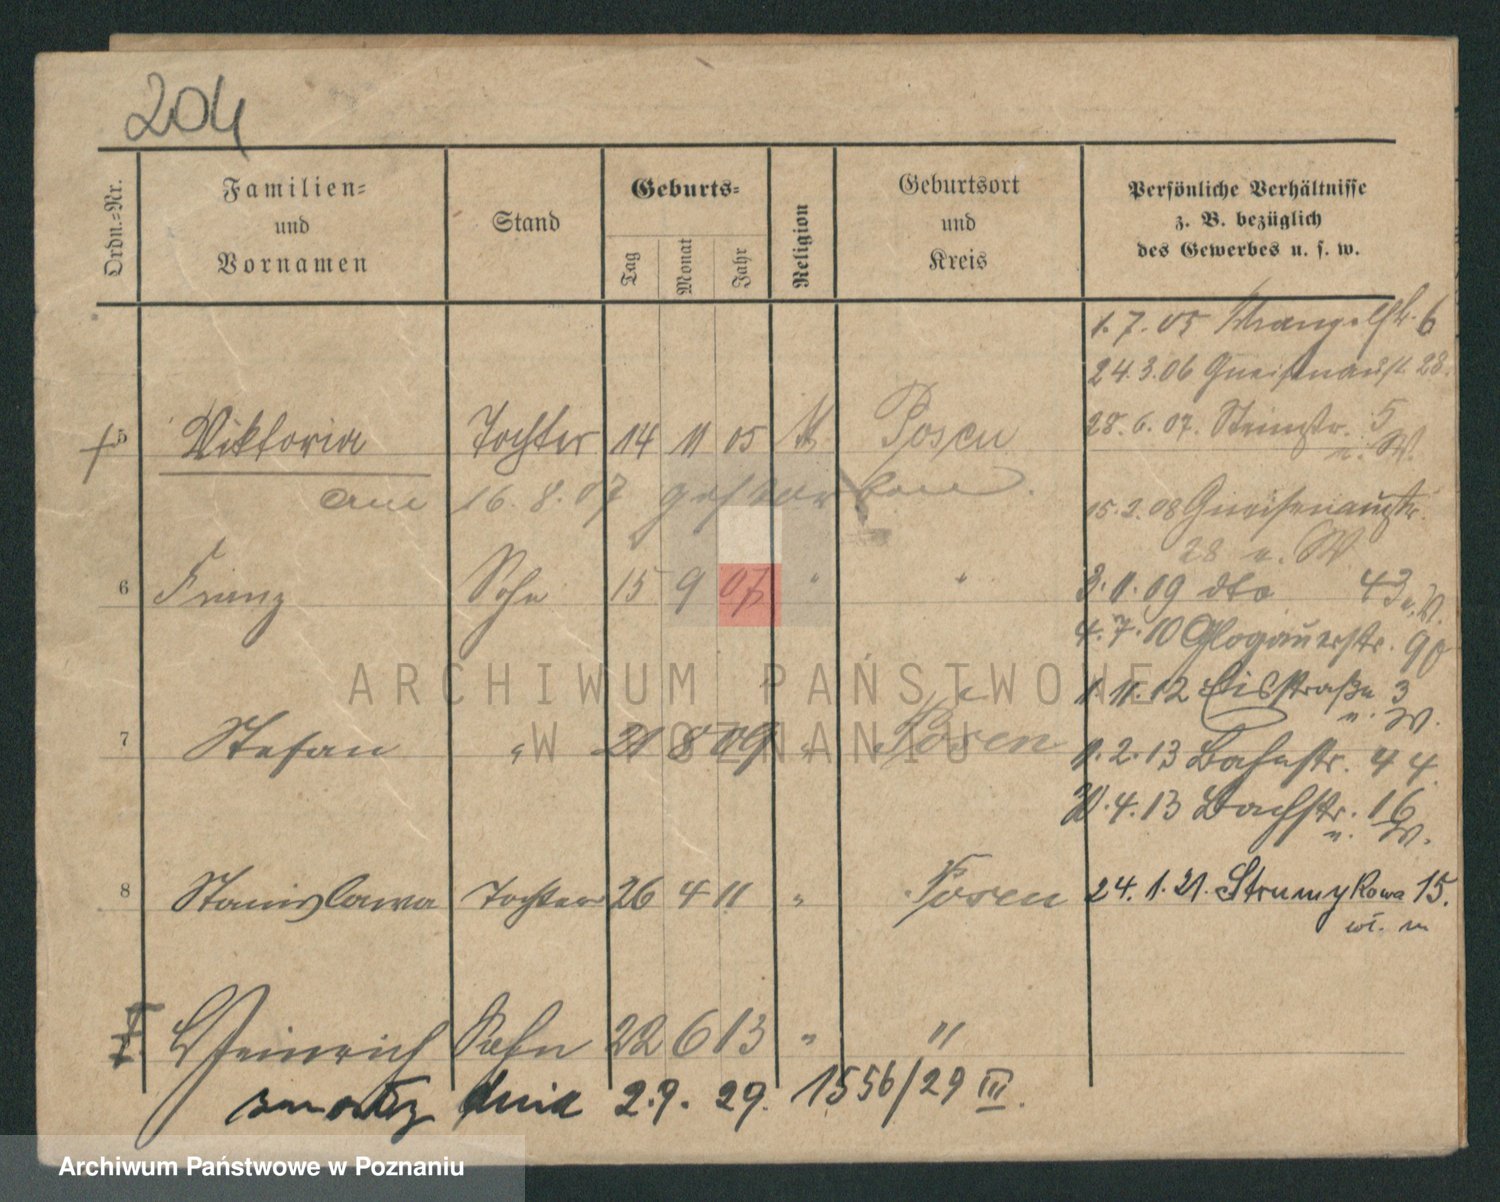 204
Ordn.-Nr.
Familien-
und
Vornamen
Stand
Geburts-
Tag
Monat
Jahr
Religion
Geburtsort
und
Kreis
Persönliche Verhältnisse
z. B. bezüglich
des Gewerbes u. s. w.
1. 7. 05 6
24. 3. 06 Gneisenaustr 28.
5 Viktoria Tochter 14 11 05 Posen
28. 6. 07. Steinstr. 5
u. W.
am 16. 8. 07 gestorben.
15. 2. 08 Gneisenaustr.
28 u. W
6 Franz Sohn 15 9 07 " "
3. 1. 09 dto 43
u. W.
4. 7. 10 Glogauerstr. 90
1. 11. 12 Eisstraße 3
u. W.
7 Stefan " 21 8 09 " Posen
1. 2. 13 Bahnstr. 44.
4. 13 Bachstr. 16
u. W.
8 Stanislawa Tochter 26 4 11 " Posen
24. 1. 21. Strumykowa 15.
wł. m
Heinrich Sohn 22 6 13 " "
zmarły dnia 2. 9. 29. 1556/29 III.
ARCHIWUM PAŃSTWOWE
W POZNANIU
Archiwum Państwowe w Poznaniu